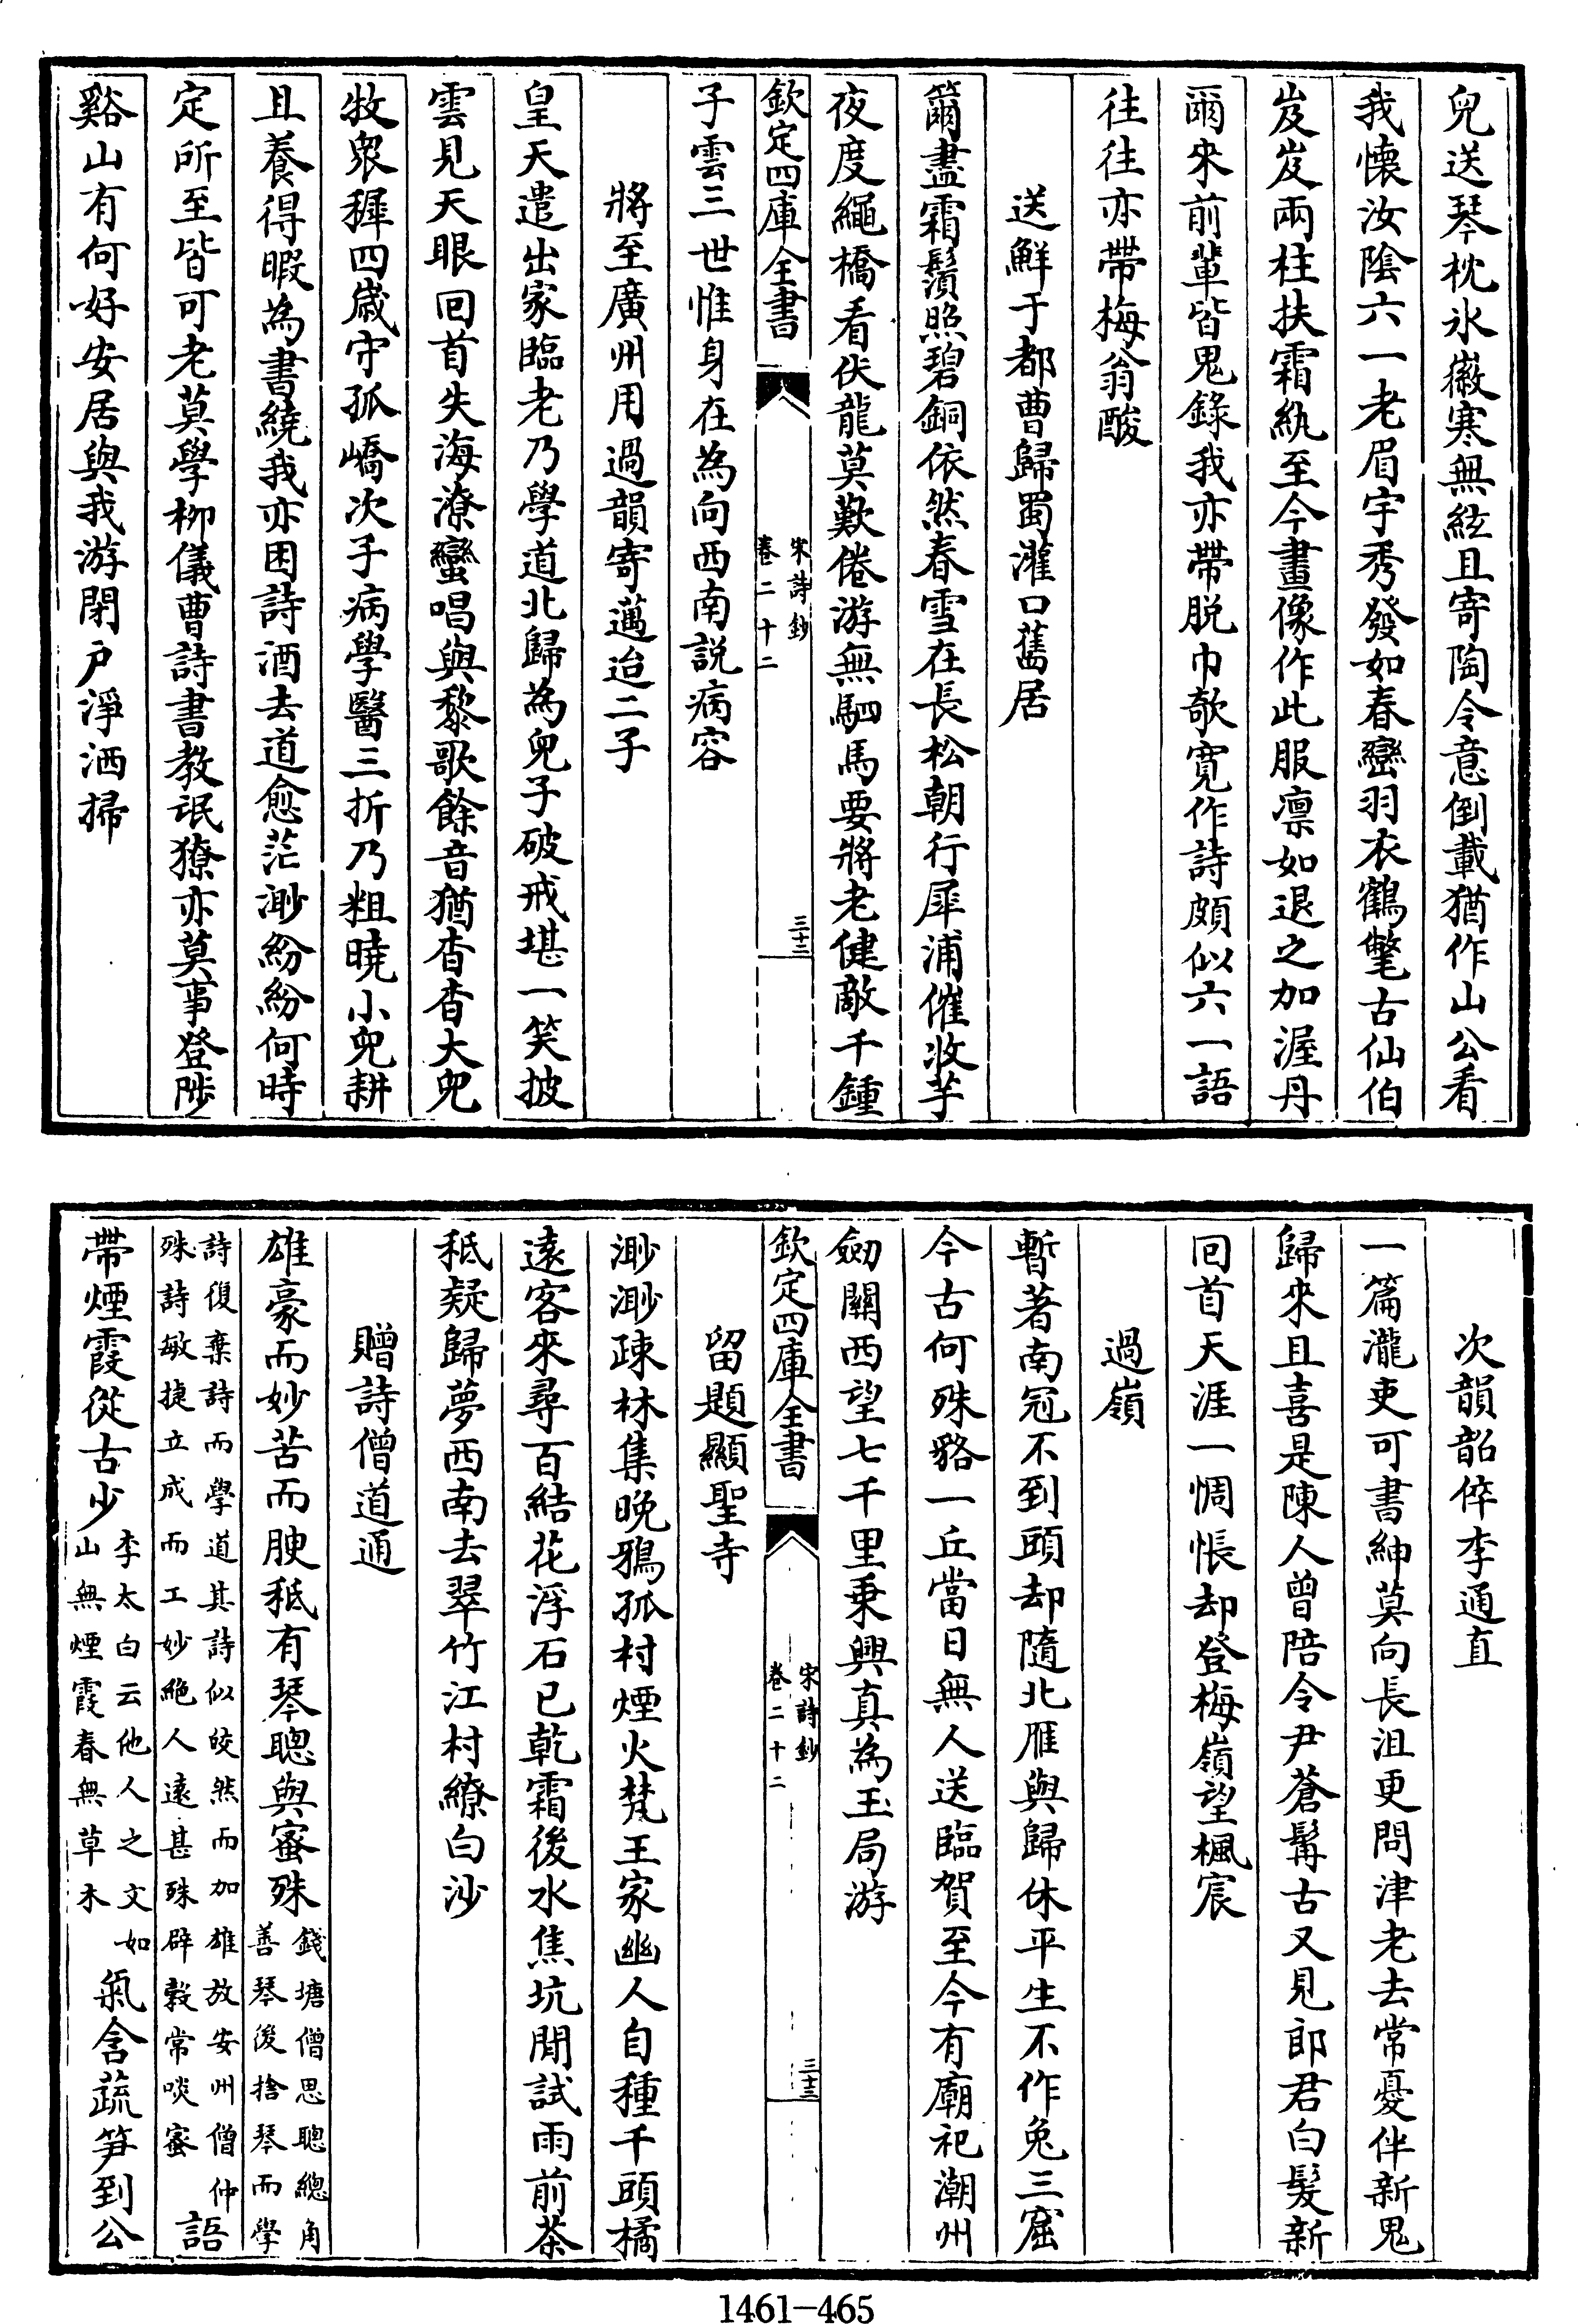 兒送琴枕氷徽寒無絃且寄陶令意倒載猶作山公看
我懷汝陰六一老眉宇秀發如春巒羽衣鶴氅古仙伯
岌岌兩柱扶霜紈至今畫像作此服凛如退之加渥丹
爾來前輩皆鬼錄我亦帶脱巾欹寛作詩頗似六一語
往往亦帶梅翁酸
送鮮于都曹歸蜀灌口舊居
籋盡霜鬚照碧銅依然春雪在長松朝行犀浦催收芋
夜度繩橋看伏龍莫歎倦游無駟馬要將老健敵千鍾
欽定四庫全書
宋詩鈔
卷二十二
三十三
子雲三世惟身在為向西南説病容
將至廣州用過韻寄邁迨二子
皇天遣出家臨老乃學道北歸為兒子破戒堪一笑披
雲見天眼回首失海潦蠻唱與黎歌餘音猶杳杳大兒
牧衆穉四歲守孤嶠次子病學醫三折乃粗曉小兒耕
且養得暇為書繞我亦困詩酒去道愈茫渺紛紛何時
定所至皆可老莫學柳儀曹詩書教氓獠亦莫事登陟
谿山有何好安居與我游閉户淨洒掃
次韻韶倅李通直
一篇瀧吏可書紳莫向長沮更問津老去常憂伴新鬼
歸來且喜是陳人曾陪令尹蒼髯古又見郎君白髮新
回首天涯一惆悵却登梅嶺望楓宸
過嶺
暫著南冠不到頭却隨北雁與歸休平生不作兔三窟
今古何殊貉一丘當日無人送臨賀至今有廟祀潮州
劒關西望七千里乗興真為玉局游
欽定四庫全書
宋詩鈔
卷二十二
三十三
留題顯聖寺
渺渺疎林集晚鴉孤村煙火梵王家幽人自種千頭橘
遠客來尋百結花浮石已乾霜後水焦坑閒試雨前茶
秪疑歸夢西南去翠竹江村繚白沙
贈詩僧道通
雄豪而妙苦而腴秪有琴聰與蜜殊錢塘僧思聰總角善琴後捨琴而學
詩復棄詩而學道其詩似皎然而加雄放安州僧仲殊詩敏捷立成而工妙絶人遠甚殊辟穀常啖蜜語
帶煙霞從古少李太白云他人之文如山無煙霞春無草木氣含蔬笋到公
1461-465